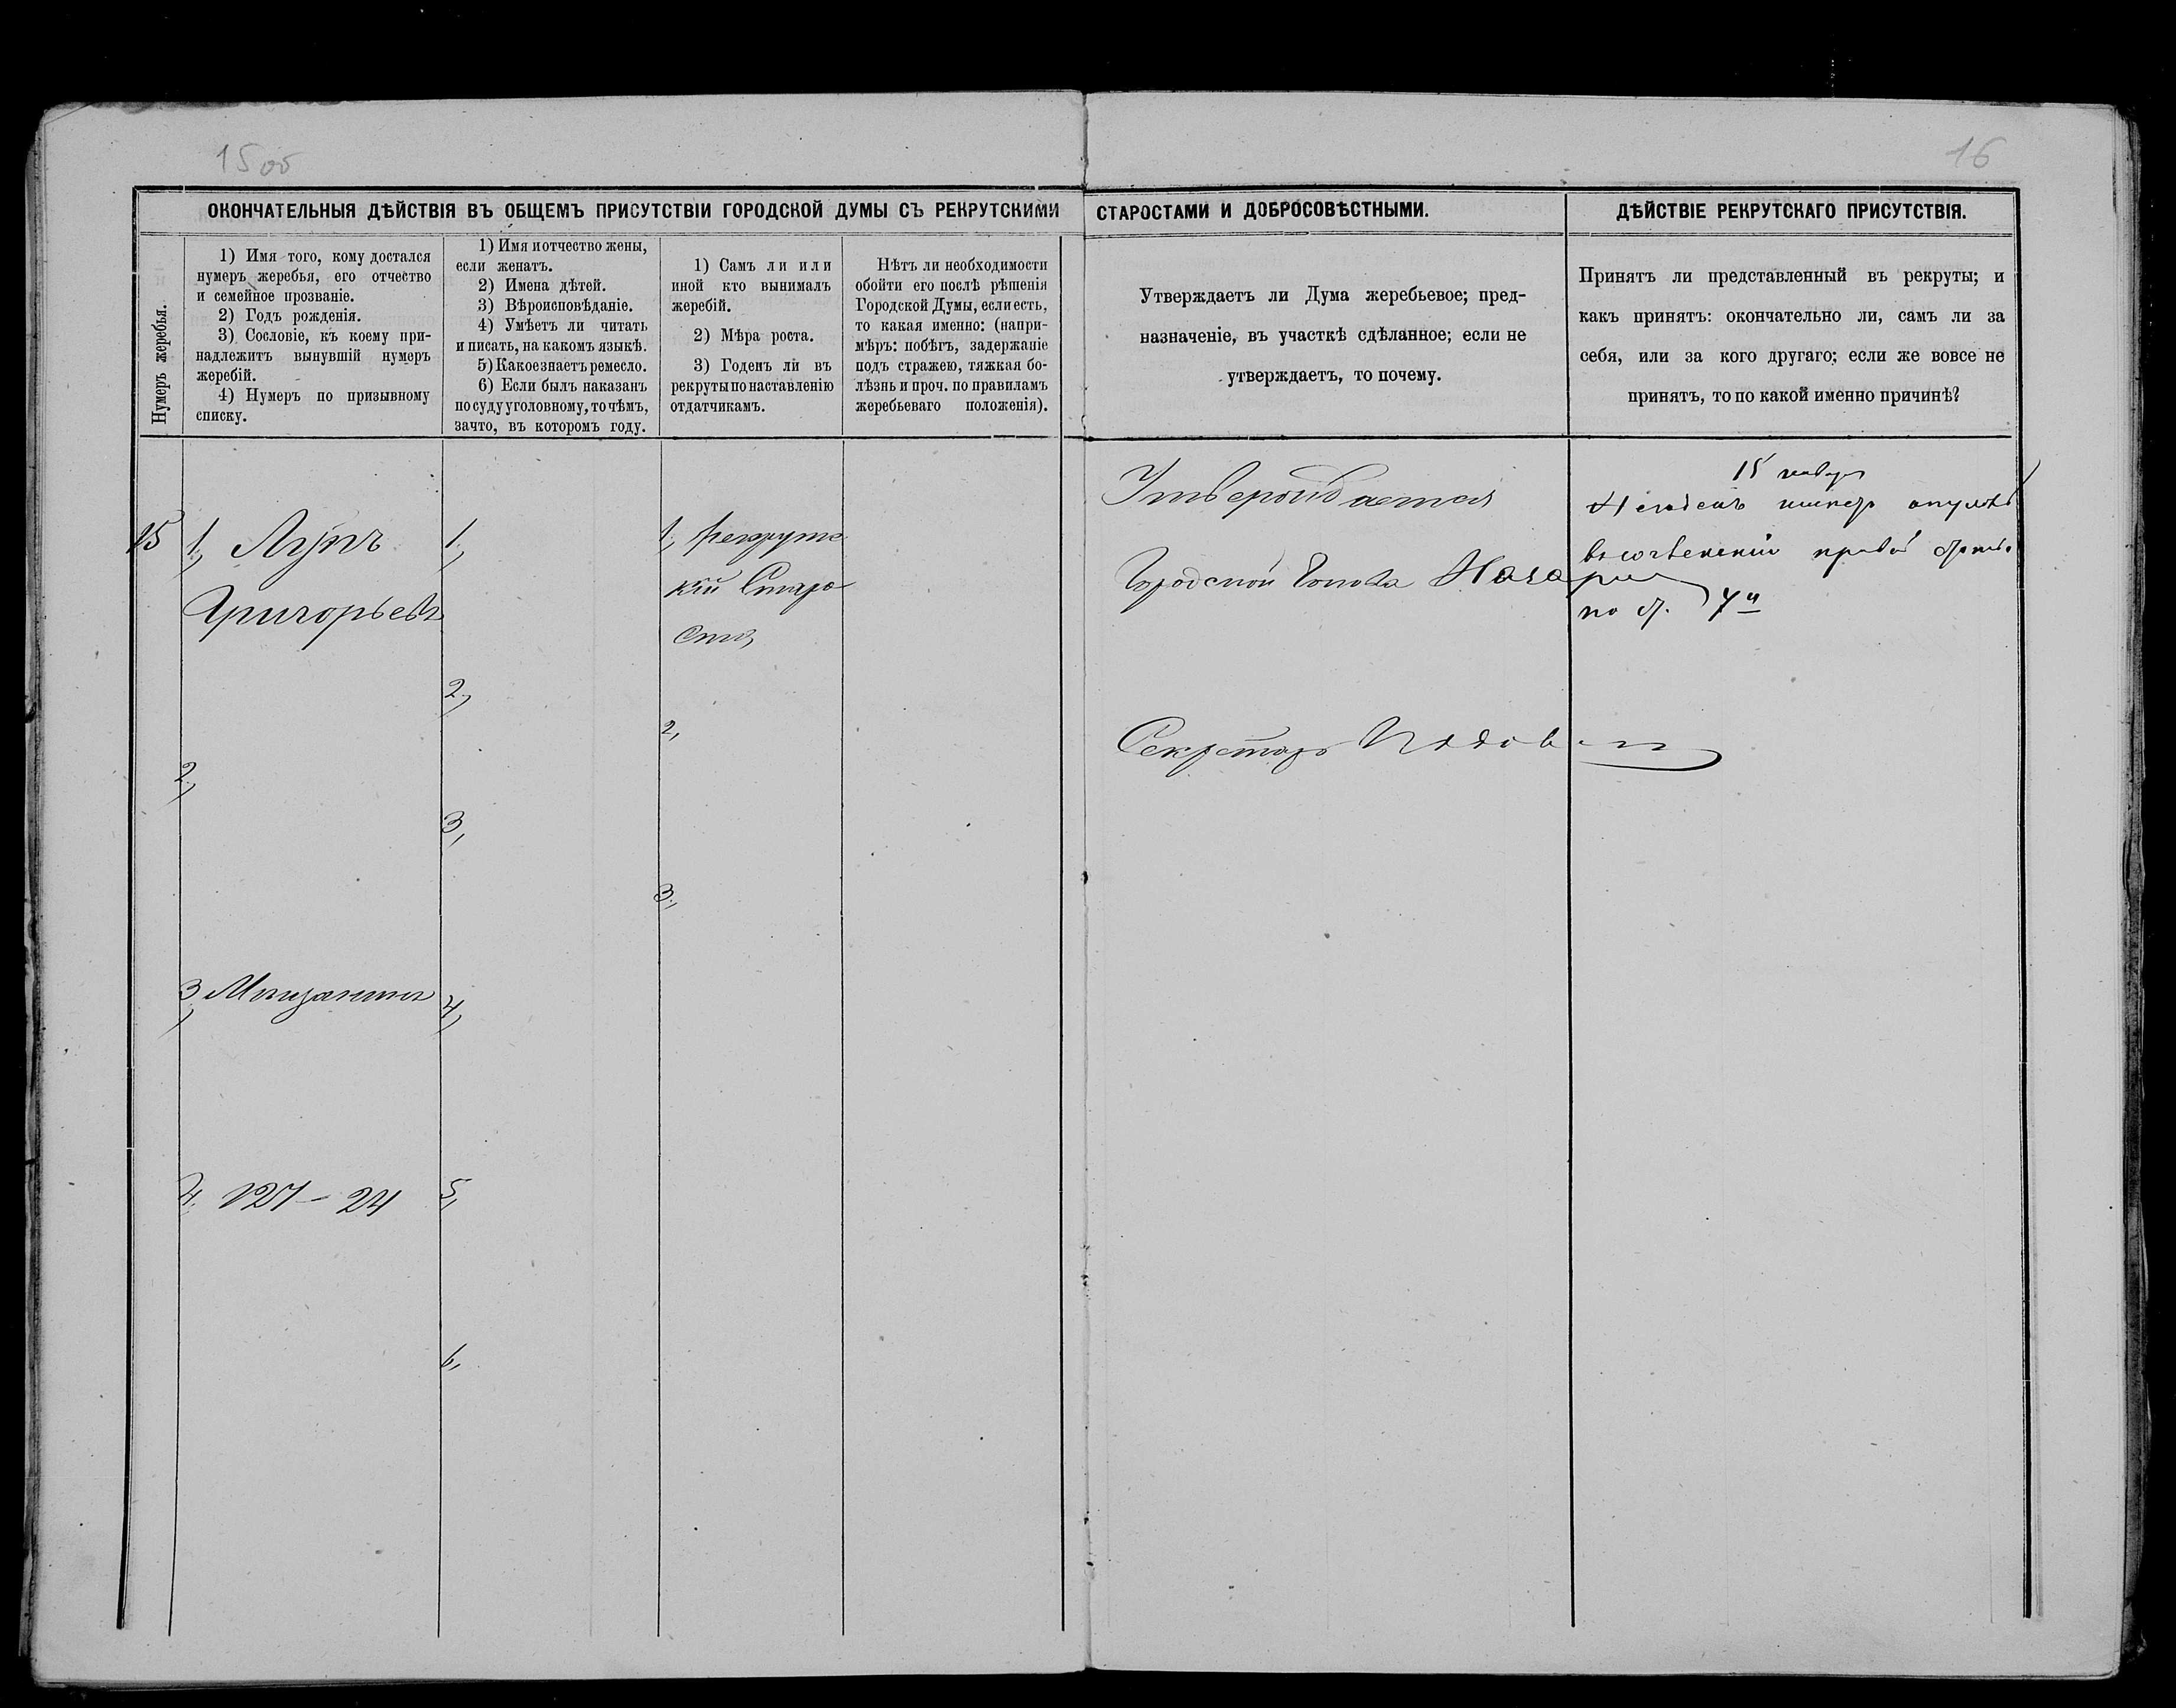 15 об
16
ОКОНЧАТЕЛЬНЫЯ ДѢЙСТВІЯ ВЪ ОБЩЕМЪ ПРИСУТСТВІИ ГОРОДСКОЙ ДУМЫ СЪ РЕКРУТСКИМИ СТАРОСТАМИ И ДОБРОСОВѢСТНЫМИ.
ДѢЙСТВІЕ РЕКРУТСКАГО ПРИСУТСТВІЯ.
Нумеръ жеребья.
1) Имя того, кому достался
нумеръ жеребья, его отчество
и семейное прозваніе.
2) Годъ рожденія.
3) Сословіе, къ коему при-
надлежитъ вынувшій нумеръ
жеребій.
4) Нумеръ по призывному
списку.
1) Имя и отчество жены,
если женатъ.
2) Имена дѣтей.
3) Вѣроисповѣданіе.
4) Умѣетъ ли читать
и писать, на какомъ языкѣ.
5) Какое знаетъ ремесло.
6) Если былъ наказанъ
по суду уголовному, то чѣмъ,
за что, въ которомъ году.
1) Самъ ли или
иной кто вынималъ
жеребій.
2) Мѣра роста.
3) Годенъ ли въ
рекруты по наставленію
отдатчикамъ.
Нѣтъ ли необходимости
обойти его послѣ рѣшенія
Городской Думы, если есть,
то какая именно: (напри-
мѣръ: побѣгъ, задержаніе
подъ стражею, тяжкая бо-
лѣзнь и проч. по правиламъ
жеребьеваго положенія).
Утверждаетъ ли Дума жеребьевое; пред-
назначеніе, въ участкѣ сдѣланное; если не
утверждаетъ, то почему.
Принятъ ли представленный въ рекруты; и
какъ принятъ: окончательно ли, самъ ли за
себя, или за кого другаго; если же вовсе не
принятъ, то по какой именно причинѣ?
15
1, Лупъ
Григорьевъ
2,
3, Мещанинъ
4, 127 – 24
1,
2,
3,
4,
5,
6,
1, Рекрутс
кій Старо
ста,
2,
3,
Утверждается
Городской Голова
Секретарь
15 января
по